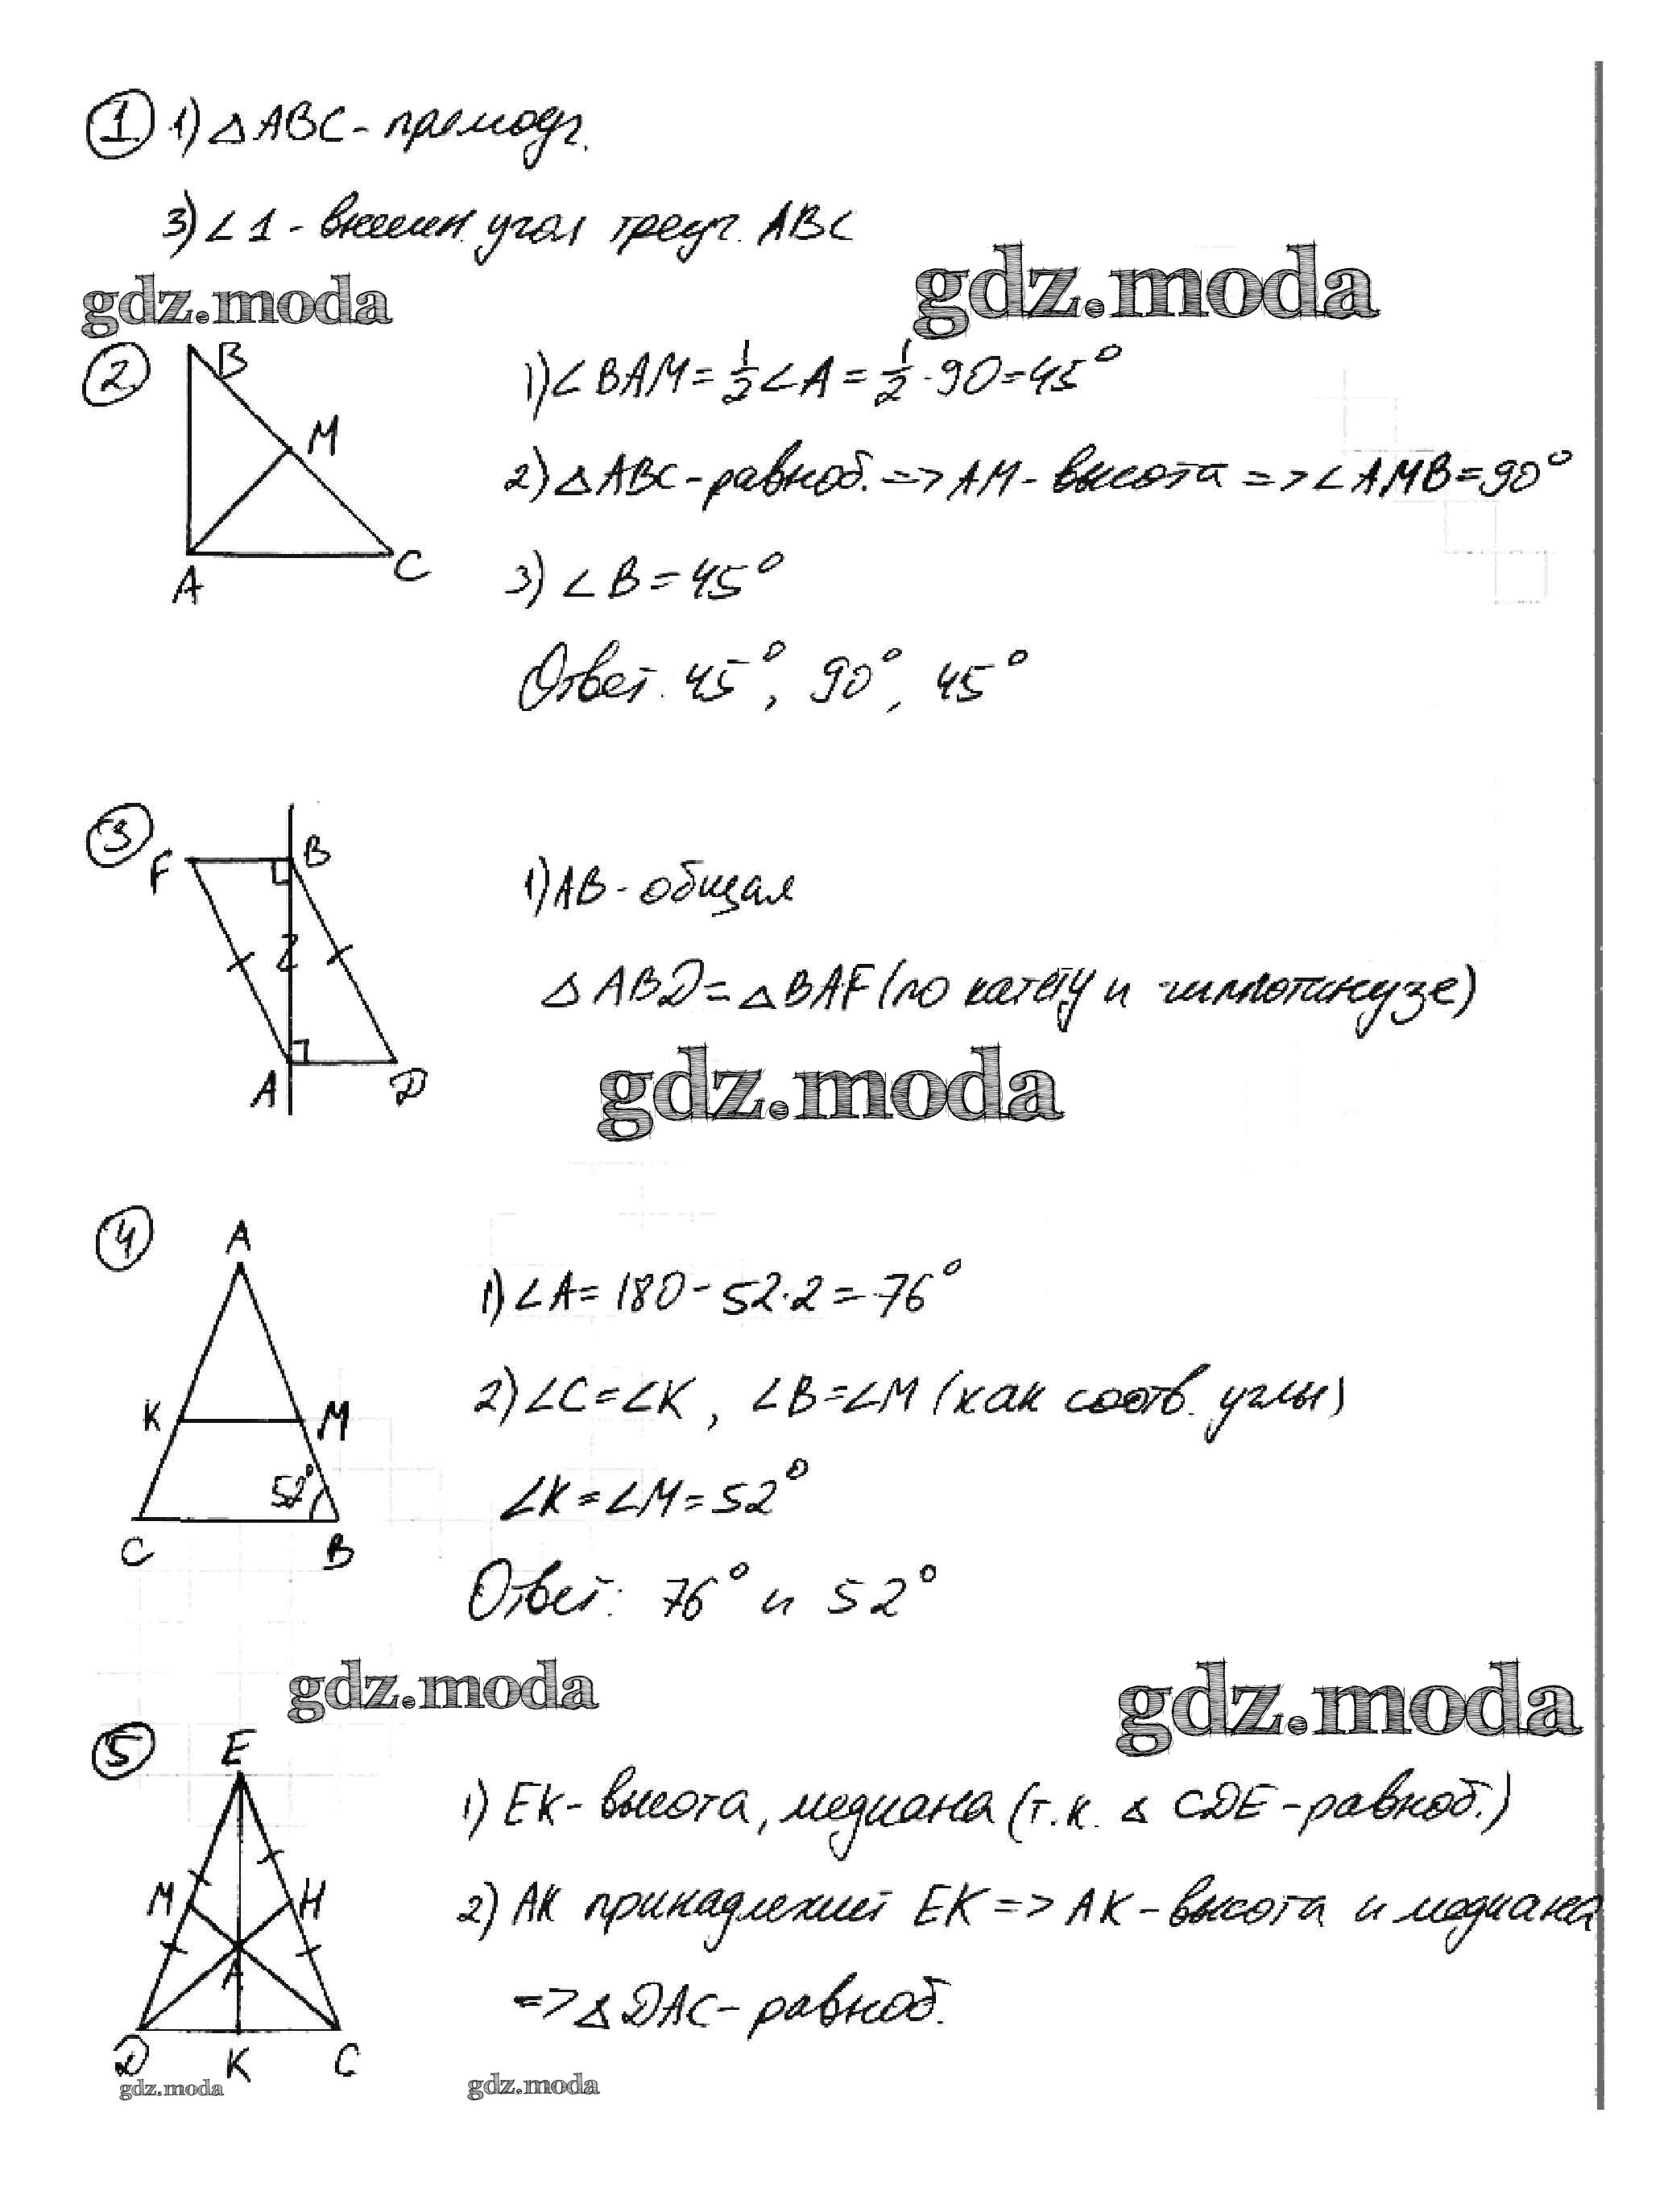 1 1) △ABC - прямоуг.
3) ∠1 - внешн. угол треуг. ABC
gdz.moda
gdz.moda
2
B
M
A
C
1) ∠BAM = 1/2 ∠A = 1/2 · 90 = 45°
2) △ABC - равноб. => AM - высота => ∠AMB = 90°
3) ∠B = 45°
Ответ: 45°, 90°, 45°
3
F
B
A
D
1) AB - общая
△ABD = △BAF (по катету и гиппотинузе)
gdz.moda
4
A
K
M
52°
C
B
1) ∠A = 180 - 52·2 = 76°
2) ∠C = ∠K, ∠B = ∠M (как соотв. углы)
∠K = ∠M = 52°
Ответ: 76° и 52°
gdz.moda
gdz.moda
5
E
M
H
A
D
K
C
1) EK - высота, медиана (т.к. △ CDE - равноб.)
2) AK принадлежит EK => AK - высота и медиана
=> △DAC - равноб.
gdz.moda
gdz.moda